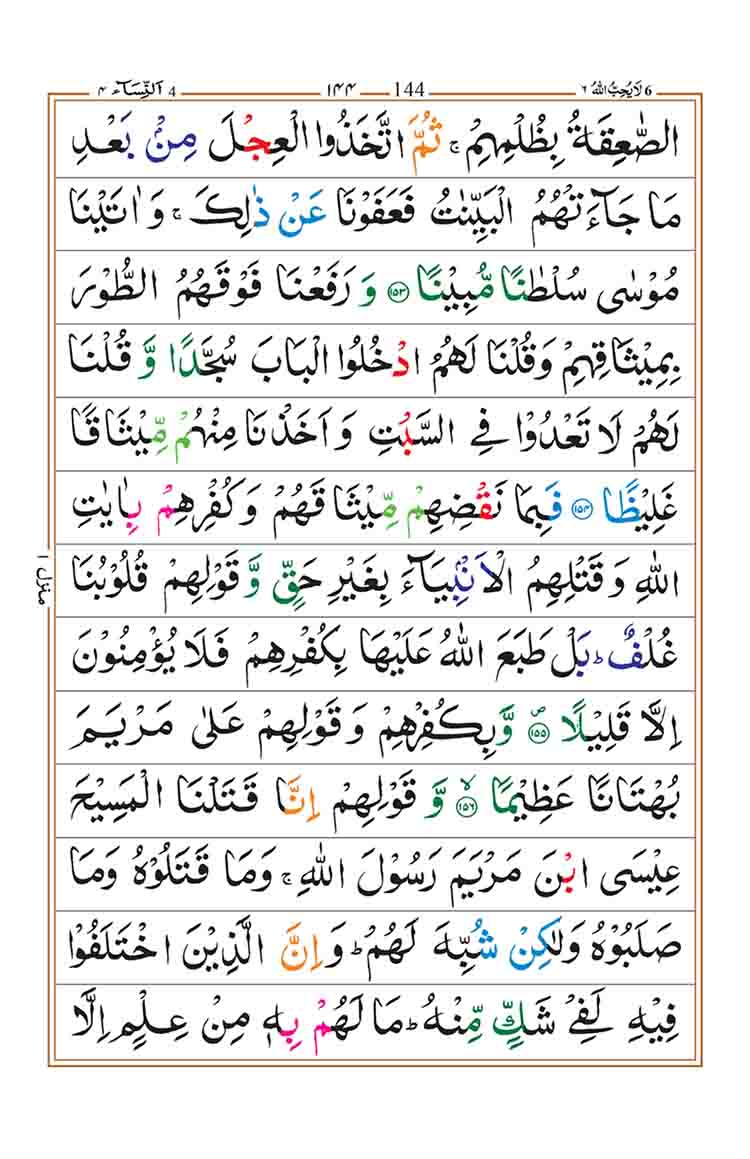 اَلنِّسَآء ۴ 4 ۱۴۴ 144 لَا يُحِبُّ اللّٰهُ ۶ 6
الصّٰعِقَةُ بِظُلْمِهِمْ ۚ ثُمَّ اتَّخَذُوا الْعِجْلَ مِنْۢ بَعْدِ
مَا جَآءَتْهُمُ الْبَيِّنٰتُ فَعَفَوْنَا عَنْ ذٰلِكَ ۚ وَ اٰتَيْنَا
مُوْسٰى سُلْطٰنًا مُّبِيْنًا ﴿۱۵۳﴾ وَ رَفَعْنَا فَوْقَهُمُ الطُّوْرَ
بِمِيْثَاقِهِمْ وَقُلْنَا لَهُمُ ادْخُلُوا الْبَابَ سُجَّدًا وَّ قُلْنَا
لَهُمْ لَا تَعْدُوْا فِي السَّبْتِ وَ اَخَذْنَا مِنْهُمْ مِّيْثَاقًا
غَلِيْظًا ﴿۱۵۴﴾ فَبِمَا نَقْضِهِمْ مِّيْثَاقَهُمْ وَ كُفْرِهِمْ بِاٰيٰتِ
اللّٰهِ وَ قَتْلِهِمُ الْاَنْۢبِيَآءَ بِغَيْرِ حَقٍّ وَّ قَوْلِهِمْ قُلُوْبُنَا
غُلْفٌ ؕ بَلْ طَبَعَ اللّٰهُ عَلَيْهَا بِكُفْرِهِمْ فَلَا يُؤْمِنُوْنَ
اِلَّا قَلِيْلًا ﴿۱۵۵﴾ۖ وَّ بِكُفْرِهِمْ وَ قَوْلِهِمْ عَلٰى مَرْيَمَ
بُهْتَانًا عَظِيْمًا ﴿۱۵۶﴾ۙ وَّ قَوْلِهِمْ اِنَّا قَتَلْنَا الْمَسِيْحَ
عِيْسَى ابْنَ مَرْيَمَ رَسُوْلَ اللّٰهِ ۚ وَمَا قَتَلُوْهُ وَمَا
صَلَبُوْهُ وَلٰكِنْ شُبِّهَ لَهُمْ ؕ وَ اِنَّ الَّذِيْنَ اخْتَلَفُوْا
فِيْهِ لَفِيْ شَكٍّ مِّنْهُ ؕ مَا لَهُمْ بِهٖ مِنْ عِلْمٍ اِلَّا
منزل ۱